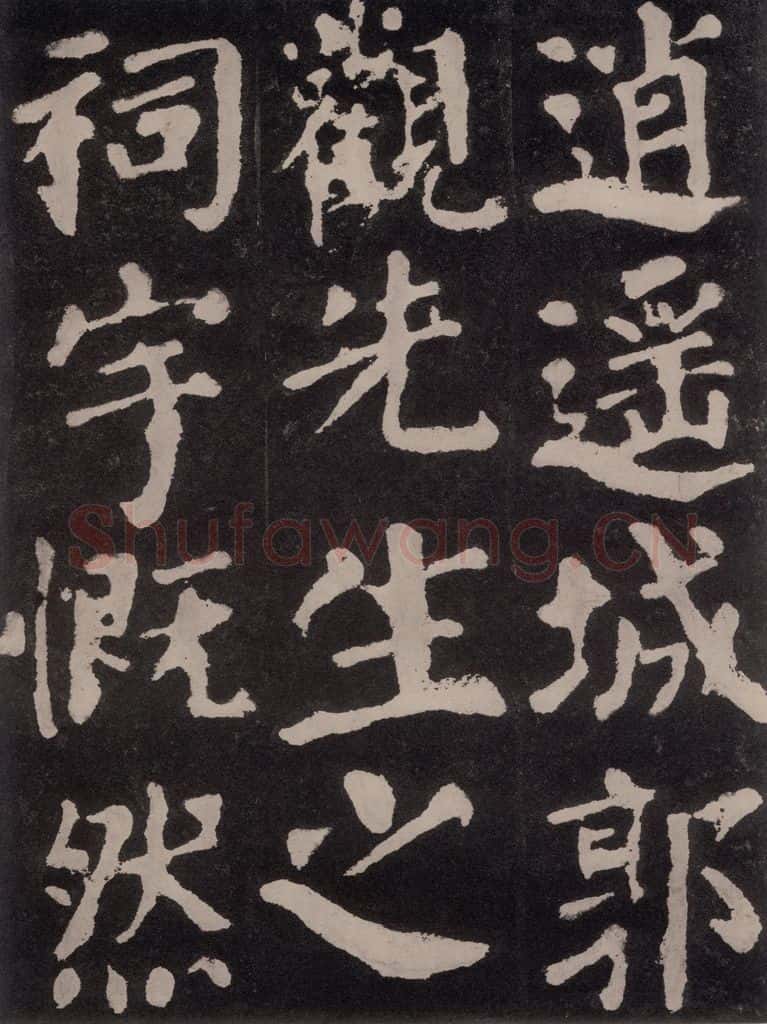 逍遥城郭
觀先生之
祠宇慨然
Shufawang.CN